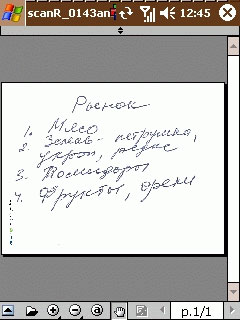 scanR_0143an
12:45
Рынок
1. Мясо
2. Зелень - петрушка,
укроп, редис
3. Помидоры
4. Фрукты, орехи
p.1/1